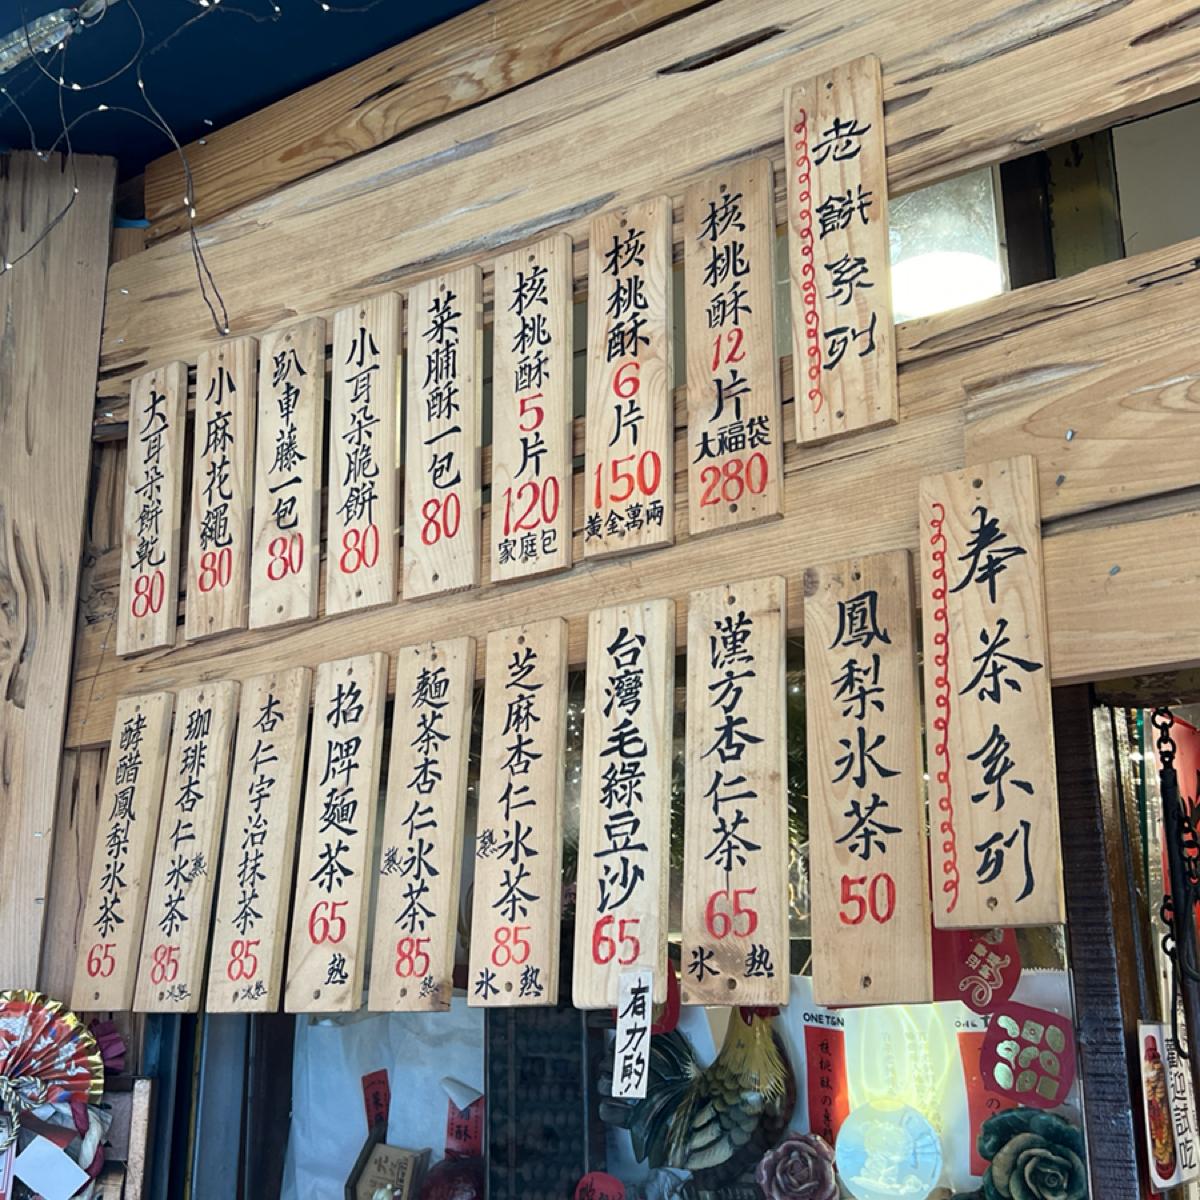 老餅系列
核桃酥12片大福袋280
核桃酥6片150黃金萬兩
核桃酥5片120家庭包
菜脯酥一包80
小耳朵脆餅80
趴車藤一包80
小麻花繩80
大耳朵餅乾80
奉茶系列
鳳梨氷茶50
漢方杏仁茶65氷 熱
台灣毛綠豆沙65
有力的
芝麻杏仁氷茶85氷 熱
熱
麵茶杏仁氷茶85熱
熱
招牌麵茶65熱
杏仁宇治抹茶85
珈琲杏仁氷茶85
熱
酵醋鳳梨氷茶65
ONE T&N
歡迎試吃